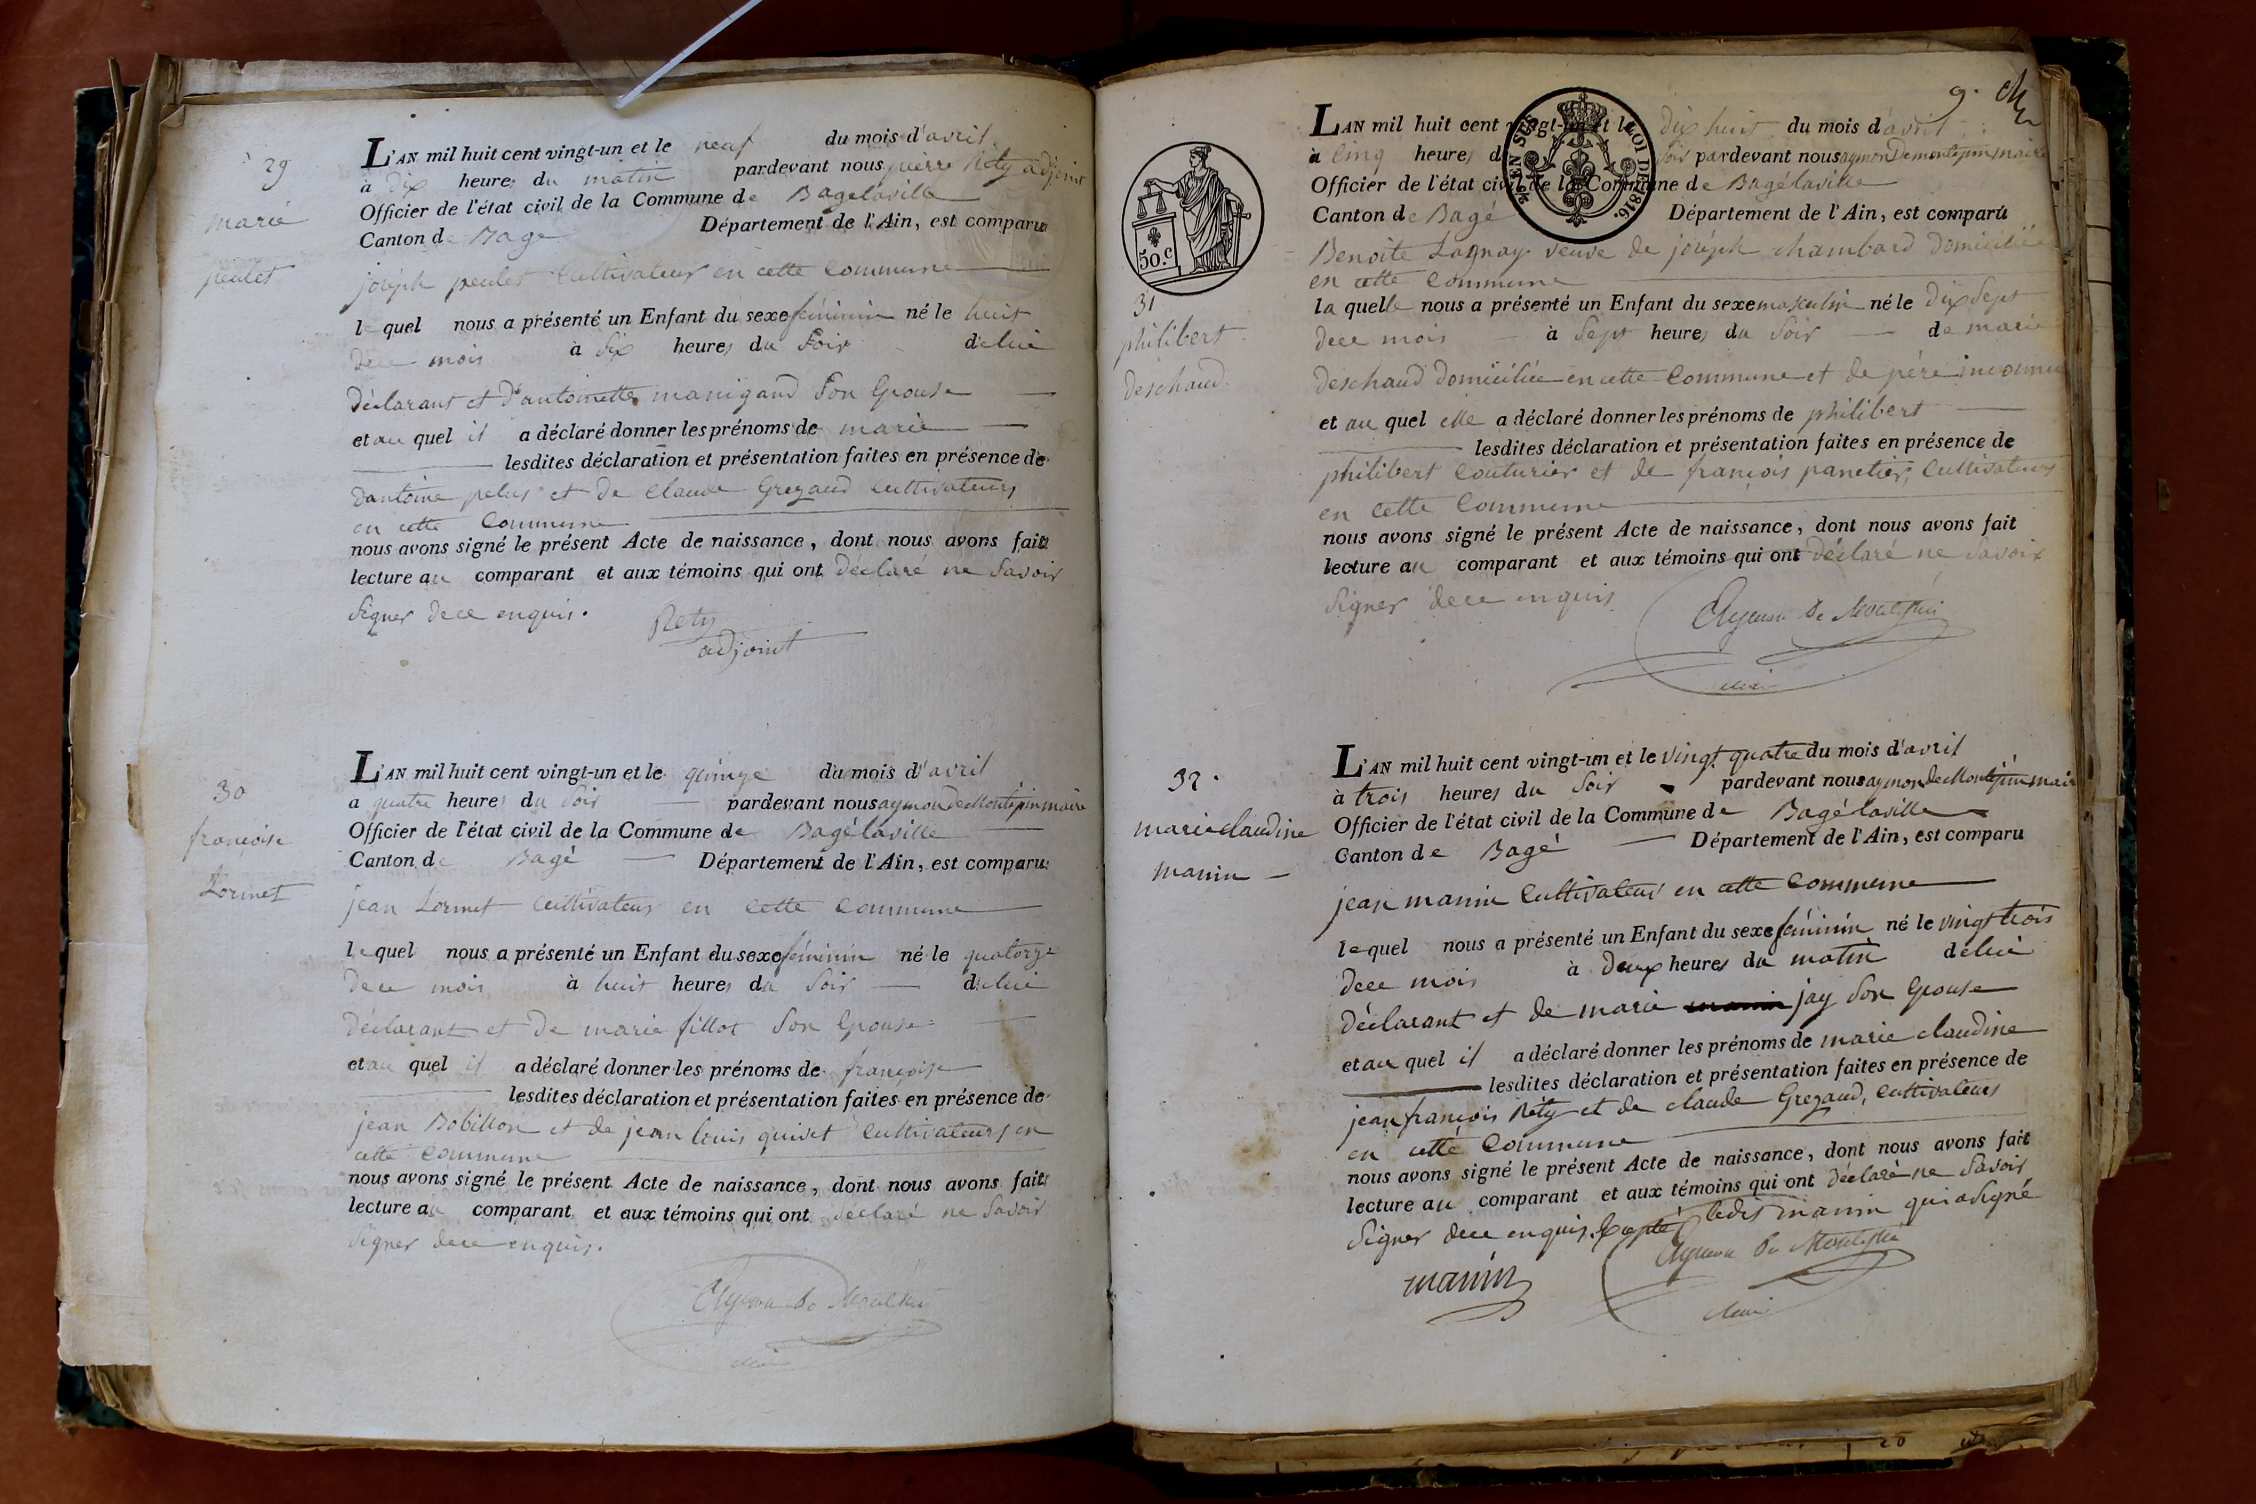 29
marie
peulet
L'AN mil huit cent vingt-un et le neuf du mois d'avril
à dix heures du matin pardevant nous pierre Réty adjoint
Officier de l'état civil de la Commune de Bagélaville
Canton de Bagé Département de l'Ain, est comparu
joseph peulet Cultivateur en cette Commune
lequel nous a présenté un Enfant du sexe féminin né le huit
dece mois à six heures du soir delui
Déclarant et d'antoinette manigand son Epouse
et au quel il a déclaré donner les prénoms de marie
lesdites déclaration et présentation faites en présence de
dantoine pelus et de Claude Grezaud Cultivateurs
en cette Commune
nous avons signé le présent Acte de naissance, dont nous avons fait
lecture au comparant et aux témoins qui ont déclaré ne Savoir
Signer dece enquis.
Réty
adjoint
30
françoise
Lormet
L'AN mil huit cent vingt-un et le quinze du mois d'avril
a quatre heures du soir pardevant nous aymon De Montépin maire
Officier de l'état civil de la Commune de Bagélaville
Canton de Bagé Département de l'Ain, est comparu
jean Lormet Cultivateur en cette Commune
lequel nous a présenté un Enfant du sexe féminin né le quatorze
dece mois à huit heures du Soir delui
Déclarant et De marie fillot Son Epouse
et au quel il a déclaré donner les prénoms de françoise
lesdites déclaration et présentation faites en présence de
jean Bobillon et de jean louis quivet Cultivateurs en
cette Commune
nous avons signé le présent Acte de naissance, dont nous avons fait
lecture au comparant et aux témoins qui ont déclaré ne Savoir
Signer dece enquis.
Aymon De Montépin
Maire
9.
50.c
EN SUS
LOI DE 1816.
31
philibert
deschaud
L'AN mil huit cent vingt-un et le dix huit du mois d'avril
à Cinq heures du soir pardevant nous aymon De montépin maire
Officier de l'état civil de la Commune de Bagélaville
Canton de Bagé Département de l'Ain, est comparu
Benoite Lagnay veuve de joseph chambard domiciliée
en cette Commune
la quelle nous a présenté un Enfant du sexe masculin né le Dix Sept
dece mois à Sept heures du Soir de marie
deschaud domiciliée en cette Commune et de père inconnu
et au quel elle a déclaré donner les prénoms de philibert
lesdites déclaration et présentation faites en présence de
philibert Couturier et de françois panetier, Cultivateurs
en cette Commune
nous avons signé le présent Acte de naissance, dont nous avons fait
lecture au comparant et aux témoins qui ont déclaré ne Savoir
Signer dece enquis
Aymon De Montépin
Maire
32.
marie claudine
manin
L'AN mil huit cent vingt-un et le vingt quatre du mois d'avril
à trois heures du Soir pardevant nous aymon De Montépin maire
Officier de l'état civil de la Commune de Bagélaville
Canton de Bagé Département de l'Ain, est comparu
jean manin Cultivateur en cette Commune
lequel nous a présenté un Enfant du sexe féminin né le vingt trois
dece mois à deux heures du matin delui
déclarant et de marie manin jay Son Epouse
et au quel il a déclaré donner les prénoms de marie claudine
lesdites déclaration et présentation faites en présence de
jean françois Réty et de claude Grezaud, Cultivateurs
en cette Commune
nous avons signé le présent Acte de naissance, dont nous avons fait
lecture au comparant et aux témoins qui ont déclaré ne Savoir
Signer dece enquis Excepté ledit manin qui a Signé
manin
Aymon De Montépin
Maire
20